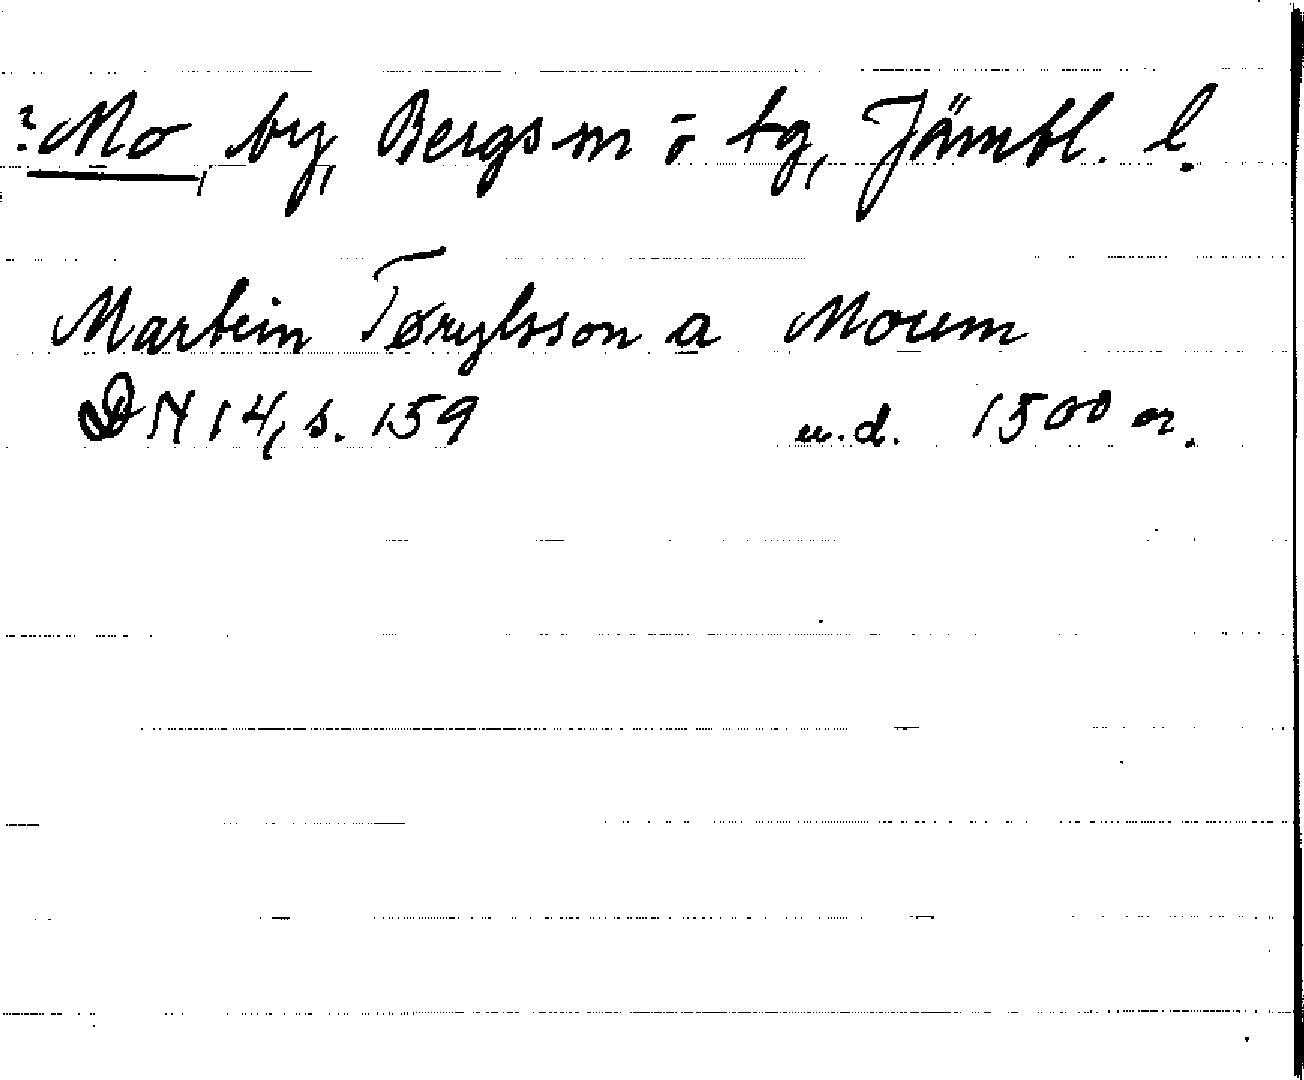 ?Mo, by, Bergs sn o tg, Jämtl. l.
Martein Tørylsson a Moum
DN 14, s. 159 u.d. 1500 or.